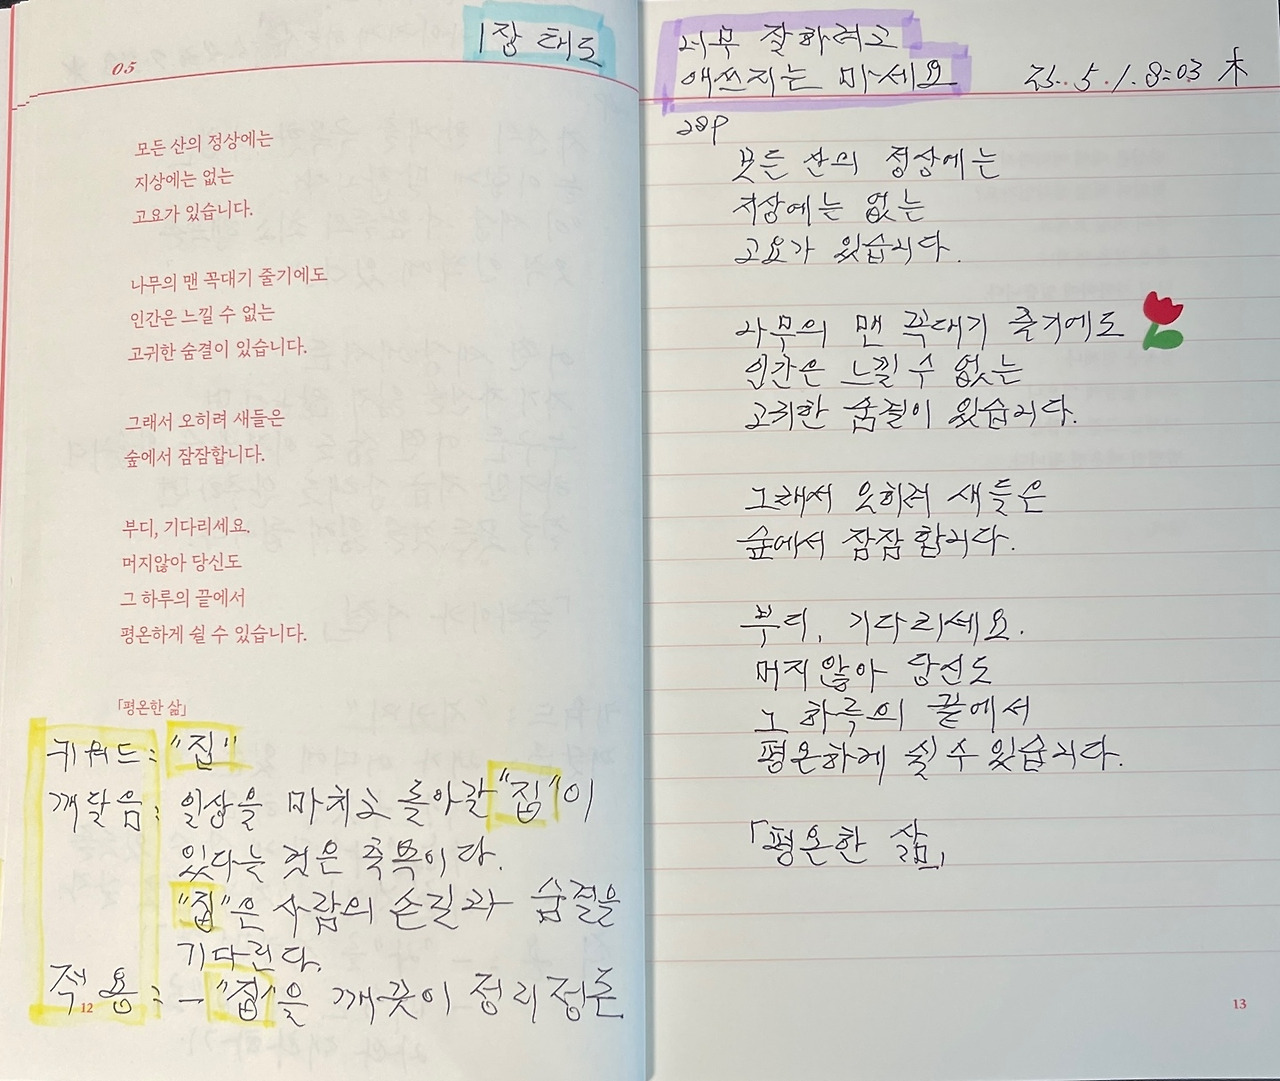 05
1장 태도
모든 산의 정상에는
지상에는 없는
고요가 있습니다.
나무의 맨 꼭대기 줄기에도
인간은 느낄 수 없는
고귀한 숨결이 있습니다.
그래서 오히려 새들은
숲에서 잠잠합니다.
부디, 기다리세요.
머지않아 당신도
그 하루의 끝에서
평온하게 쉴 수 있습니다.
「평온한 삶」
키워드: "집"
깨달음: 일상을 마치고 돌아갈 "집"이
있다는 것은 축복이다.
"집"은 사람의 손길과 숨결을
기다린다.
적용: - "집"을 깨끗이 정리정돈
12
너무 잘하려고
애쓰지는 마세요
25. 5. 1. 8:03 木
28P
모든 산의 정상에는
지상에는 없는
고요가 있습니다.
나무의 맨 꼭대기 줄기에도
인간은 느낄 수 없는
고귀한 숨결이 있습니다.
그래서 오히려 새들은
숲에서 잠잠합니다.
부디, 기다리세요.
머지않아 당신도
그 하루의 끝에서
평온하게 쉴 수 있습니다.
「평온한 삶」
13